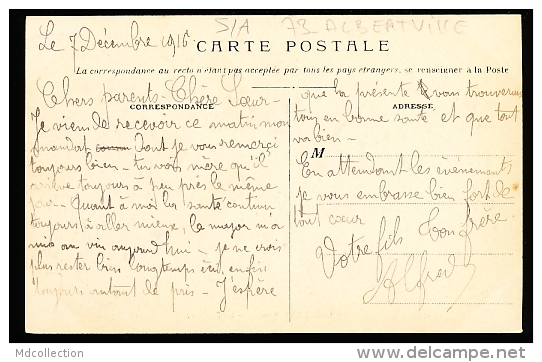 Le 7 Décembre 1916
S/A 73 ALBERTVILLE
CARTE POSTALE
La correspondance au recto n'étant pas acceptée par tous les pays étrangers, se renseigner à la Poste
CORRESPONDANCE
ADRESSE
M
Chers parents - Chère Sœur -
Je viens de recevoir ce matin mon
mandat dont je vous remerci
toujours bien - tu vois mère qu'il
arrive toujours à peu près le même
jour - Quant à moi la santé continu
toujours à aller mieux, le major m'a
mis au vin aujourd'hui - je ne crois
plus rester bien longtemps ici enfin
toujours autant de pris - J'espère
que la présente vous trouverons
tous en bonne santé et que tout
va bien -
En attendant les évènements
je vous embrasse bien fort de
tout cœur
Votre fils ton frère.
Alfred
Mdcollection
delcampe.net